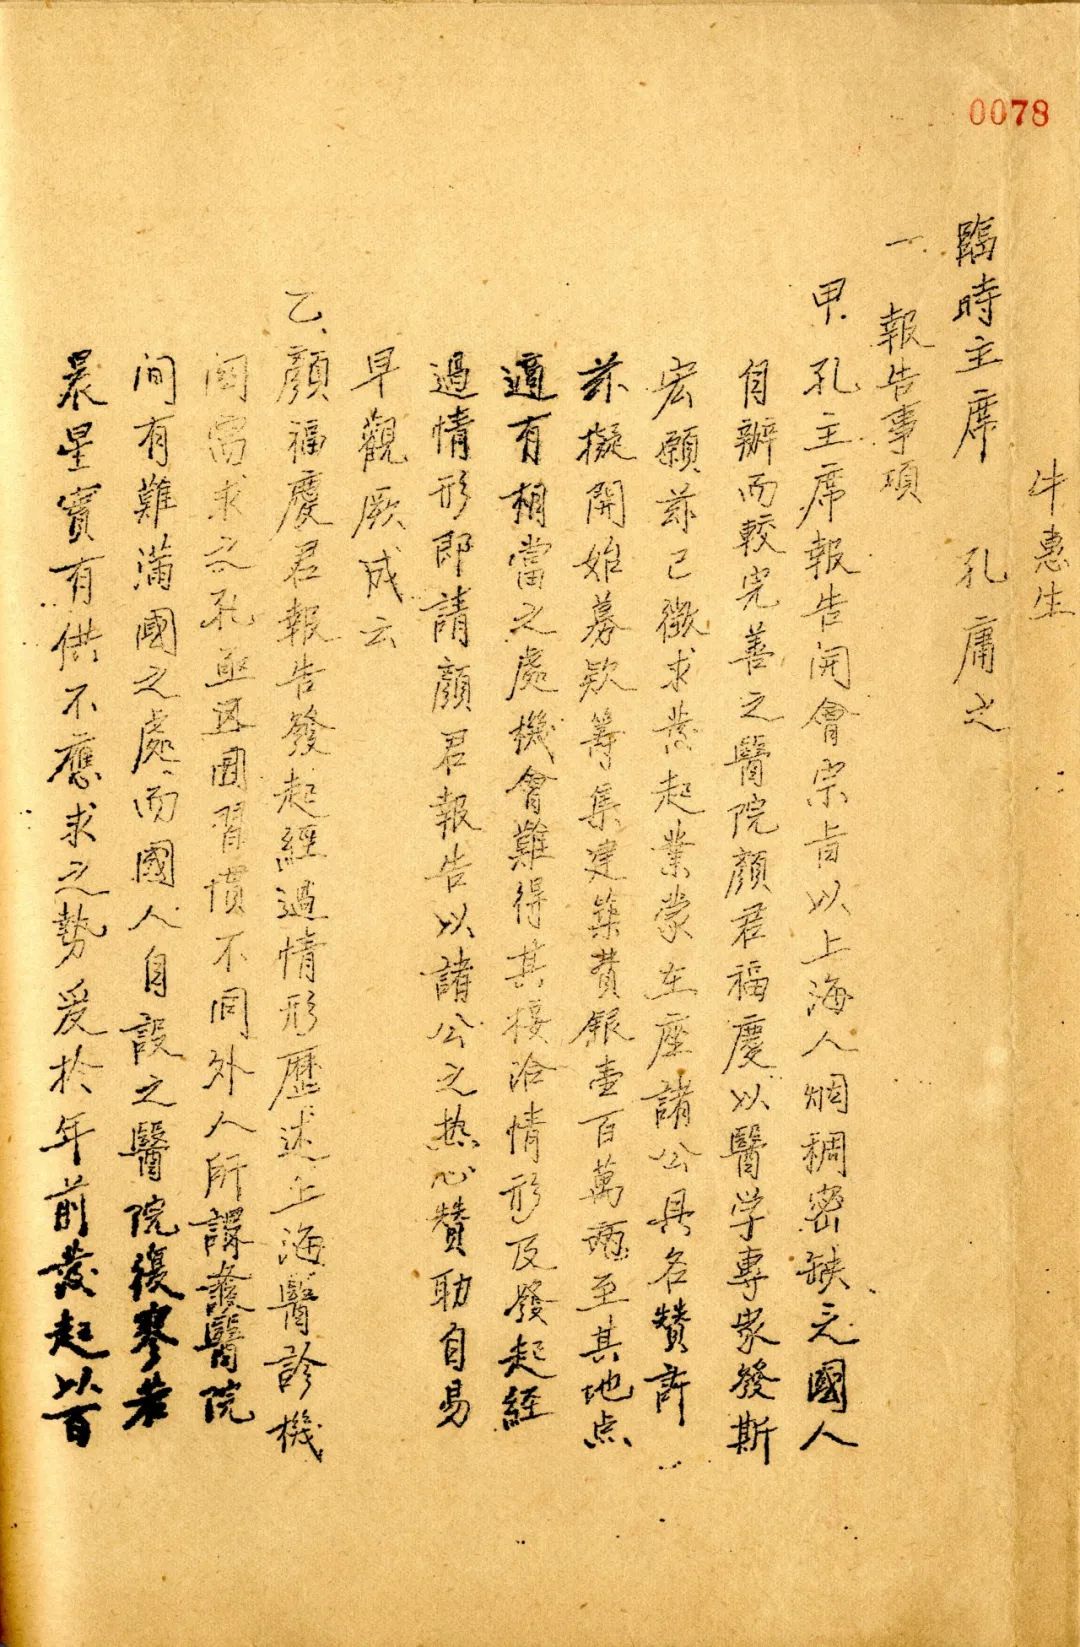 0078
牛惠生
臨時主席 孔庸之
一、報告事項
甲、孔主席報告開會宗旨以上海人烟稠密缺乏國人
自辦而較完善之醫院顏君福慶以醫学專家發斯
宏願茲已徵求發起業蒙在座諸公具名贊許
茲擬開始募款籌集建築費銀壹百萬兩至其地点
適有相當之處機會難得其接洽情形及發起經
過情形即請顏君報告以諸公之热心贊助自易
早觀厥成云
乙、顏福慶君報告發起經過情形歷述上海醫診機
関需求之孔亟因習慣不同外人所謀醫院
间有難滿國之處而國人自設之醫院復寥若
晨星實有供不應求之勢爰於年前發起以百